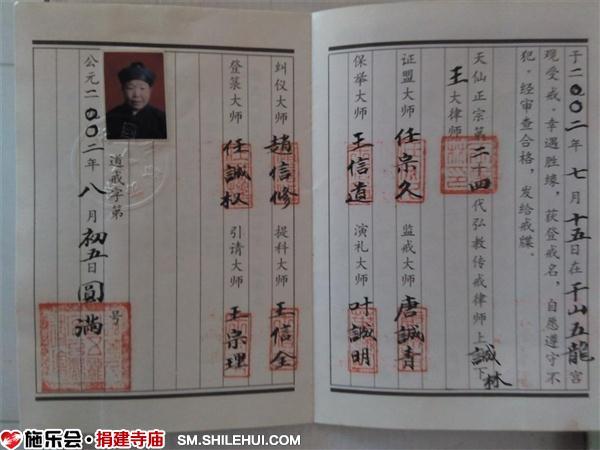 于二〇〇二年七月十五日在千山五龍宫
现受戒，幸遇胜缘，获登戒名，自愿遵守不
犯，经审查合格，发给戒牒。
天仙正宗第二十四代弘教传戒律师上誠下林
王大律师
证盟大师 任宗久 监戒大师 唐誠青
保举大师 王信道 演礼大师 叶誠明
纠仪大师 趙信修 提科大师 王信全
登箓大师 任誠权 引请大师 王宗理
道戒字第 号
公元二〇〇二年八月初五日圆满
施乐会·捐建寺庙 SM.SHILEHUI.COM